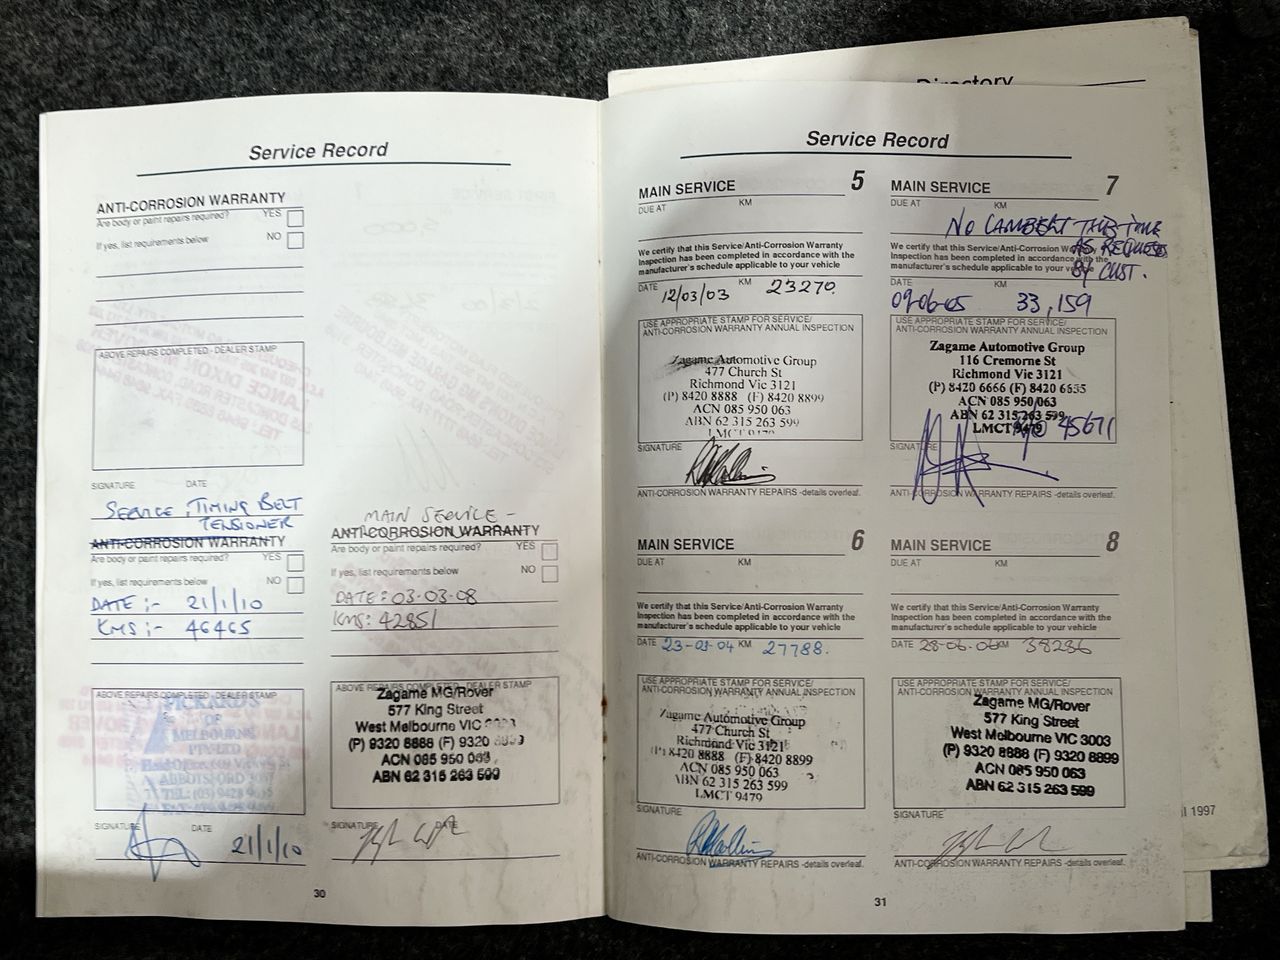 Directory
Service Record
ANTI-CORROSION WARRANTY
Are body or paint repairs required? YES
If yes, list requirements below NO
ABOVE REPAIRS COMPLETED - DEALER STAMP
SIGNATURE DATE
SERVICE, TIMING BELT
TENSIONER
ANTI-CORROSION WARRANTY
Are body or paint repairs required? YES
If yes, list requirements below NO
DATE :- 21/1/10
KMS :- 46465
ABOVE REPAIRS COMPLETED - DEALER STAMP
PICKARD'S
OF
MELBOURNE
PTY LTD
ABBOTSFORD
SIGNATURE DATE
21/1/10
MAIN SERVICE -
ANTI-CORROSION WARRANTY
Are body or paint repairs required? YES
If yes, list requirements below NO
DATE: 03-03-08
KMS: 42851
ABOVE REPAIRS COMPLETED - DEALER STAMP
Zagame MG/Rover
577 King Street
West Melbourne VIC
(P) 9320 8888 (F) 9320
ACN 085 950 063
ABN 62 315 263 599
SIGNATURE DATE
30
Service Record
MAIN SERVICE 5
DUE AT KM
We certify that this Service/Anti-Corrosion Warranty
Inspection has been completed in accordance with the
manufacturer's schedule applicable to your vehicle
DATE KM
12/03/03 23270.
USE APPROPRIATE STAMP FOR SERVICE/
ANTI-CORROSION WARRANTY ANNUAL INSPECTION
Zagame Automotive Group
477 Church St
Richmond Vic 3121
(P) 8420 8888 (F) 8420 8899
ACN 085 950 063
ABN 62 315 263 599
LMCT 9479
SIGNATURE
ANTI-CORROSION WARRANTY REPAIRS -details overleaf.
MAIN SERVICE 6
DUE AT KM
We certify that this Service/Anti-Corrosion Warranty
Inspection has been completed in accordance with the
manufacturer's schedule applicable to your vehicle
DATE 23-03-04 KM 27788.
USE APPROPRIATE STAMP FOR SERVICE/
ANTI-CORROSION WARRANTY ANNUAL INSPECTION
Zagame Automotive Group
477 Church St
Richmond Vic 3121
(P) 8420 8888 (F) 8420 8899
ACN 085 950 063
ABN 62 315 263 599
LMCT 9479
SIGNATURE
ANTI-CORROSION WARRANTY REPAIRS -details overleaf.
MAIN SERVICE 7
DUE AT KM
NO LAMBERT THIS TIME
AS REQUESTED
BY CUST.
We certify that this Service/Anti-Corrosion Warranty
Inspection has been completed in accordance with the
manufacturer's schedule applicable to your vehicle
DATE KM
09-06-05 33,159
USE APPROPRIATE STAMP FOR SERVICE/
ANTI-CORROSION WARRANTY ANNUAL INSPECTION
Zagame Automotive Group
116 Cremorne St
Richmond Vic 3121
(P) 8420 6666 (F) 8420 6655
ACN 085 950 063
ABN 62 315 263 599
LMCT 9479
45671
SIGNATURE
ANTI-CORROSION WARRANTY REPAIRS -details overleaf.
MAIN SERVICE 8
DUE AT KM
We certify that this Service/Anti-Corrosion Warranty
Inspection has been completed in accordance with the
manufacturer's schedule applicable to your vehicle
DATE 28-06-06 KM 38236
USE APPROPRIATE STAMP FOR SERVICE/
ANTI-CORROSION WARRANTY ANNUAL INSPECTION
Zagame MG/Rover
577 King Street
West Melbourne VIC 3003
(P) 9320 8888 (F) 9320 8899
ACN 085 950 063
ABN 62 315 263 599
SIGNATURE
ANTI-CORROSION WARRANTY REPAIRS -details overleaf.
31
1997